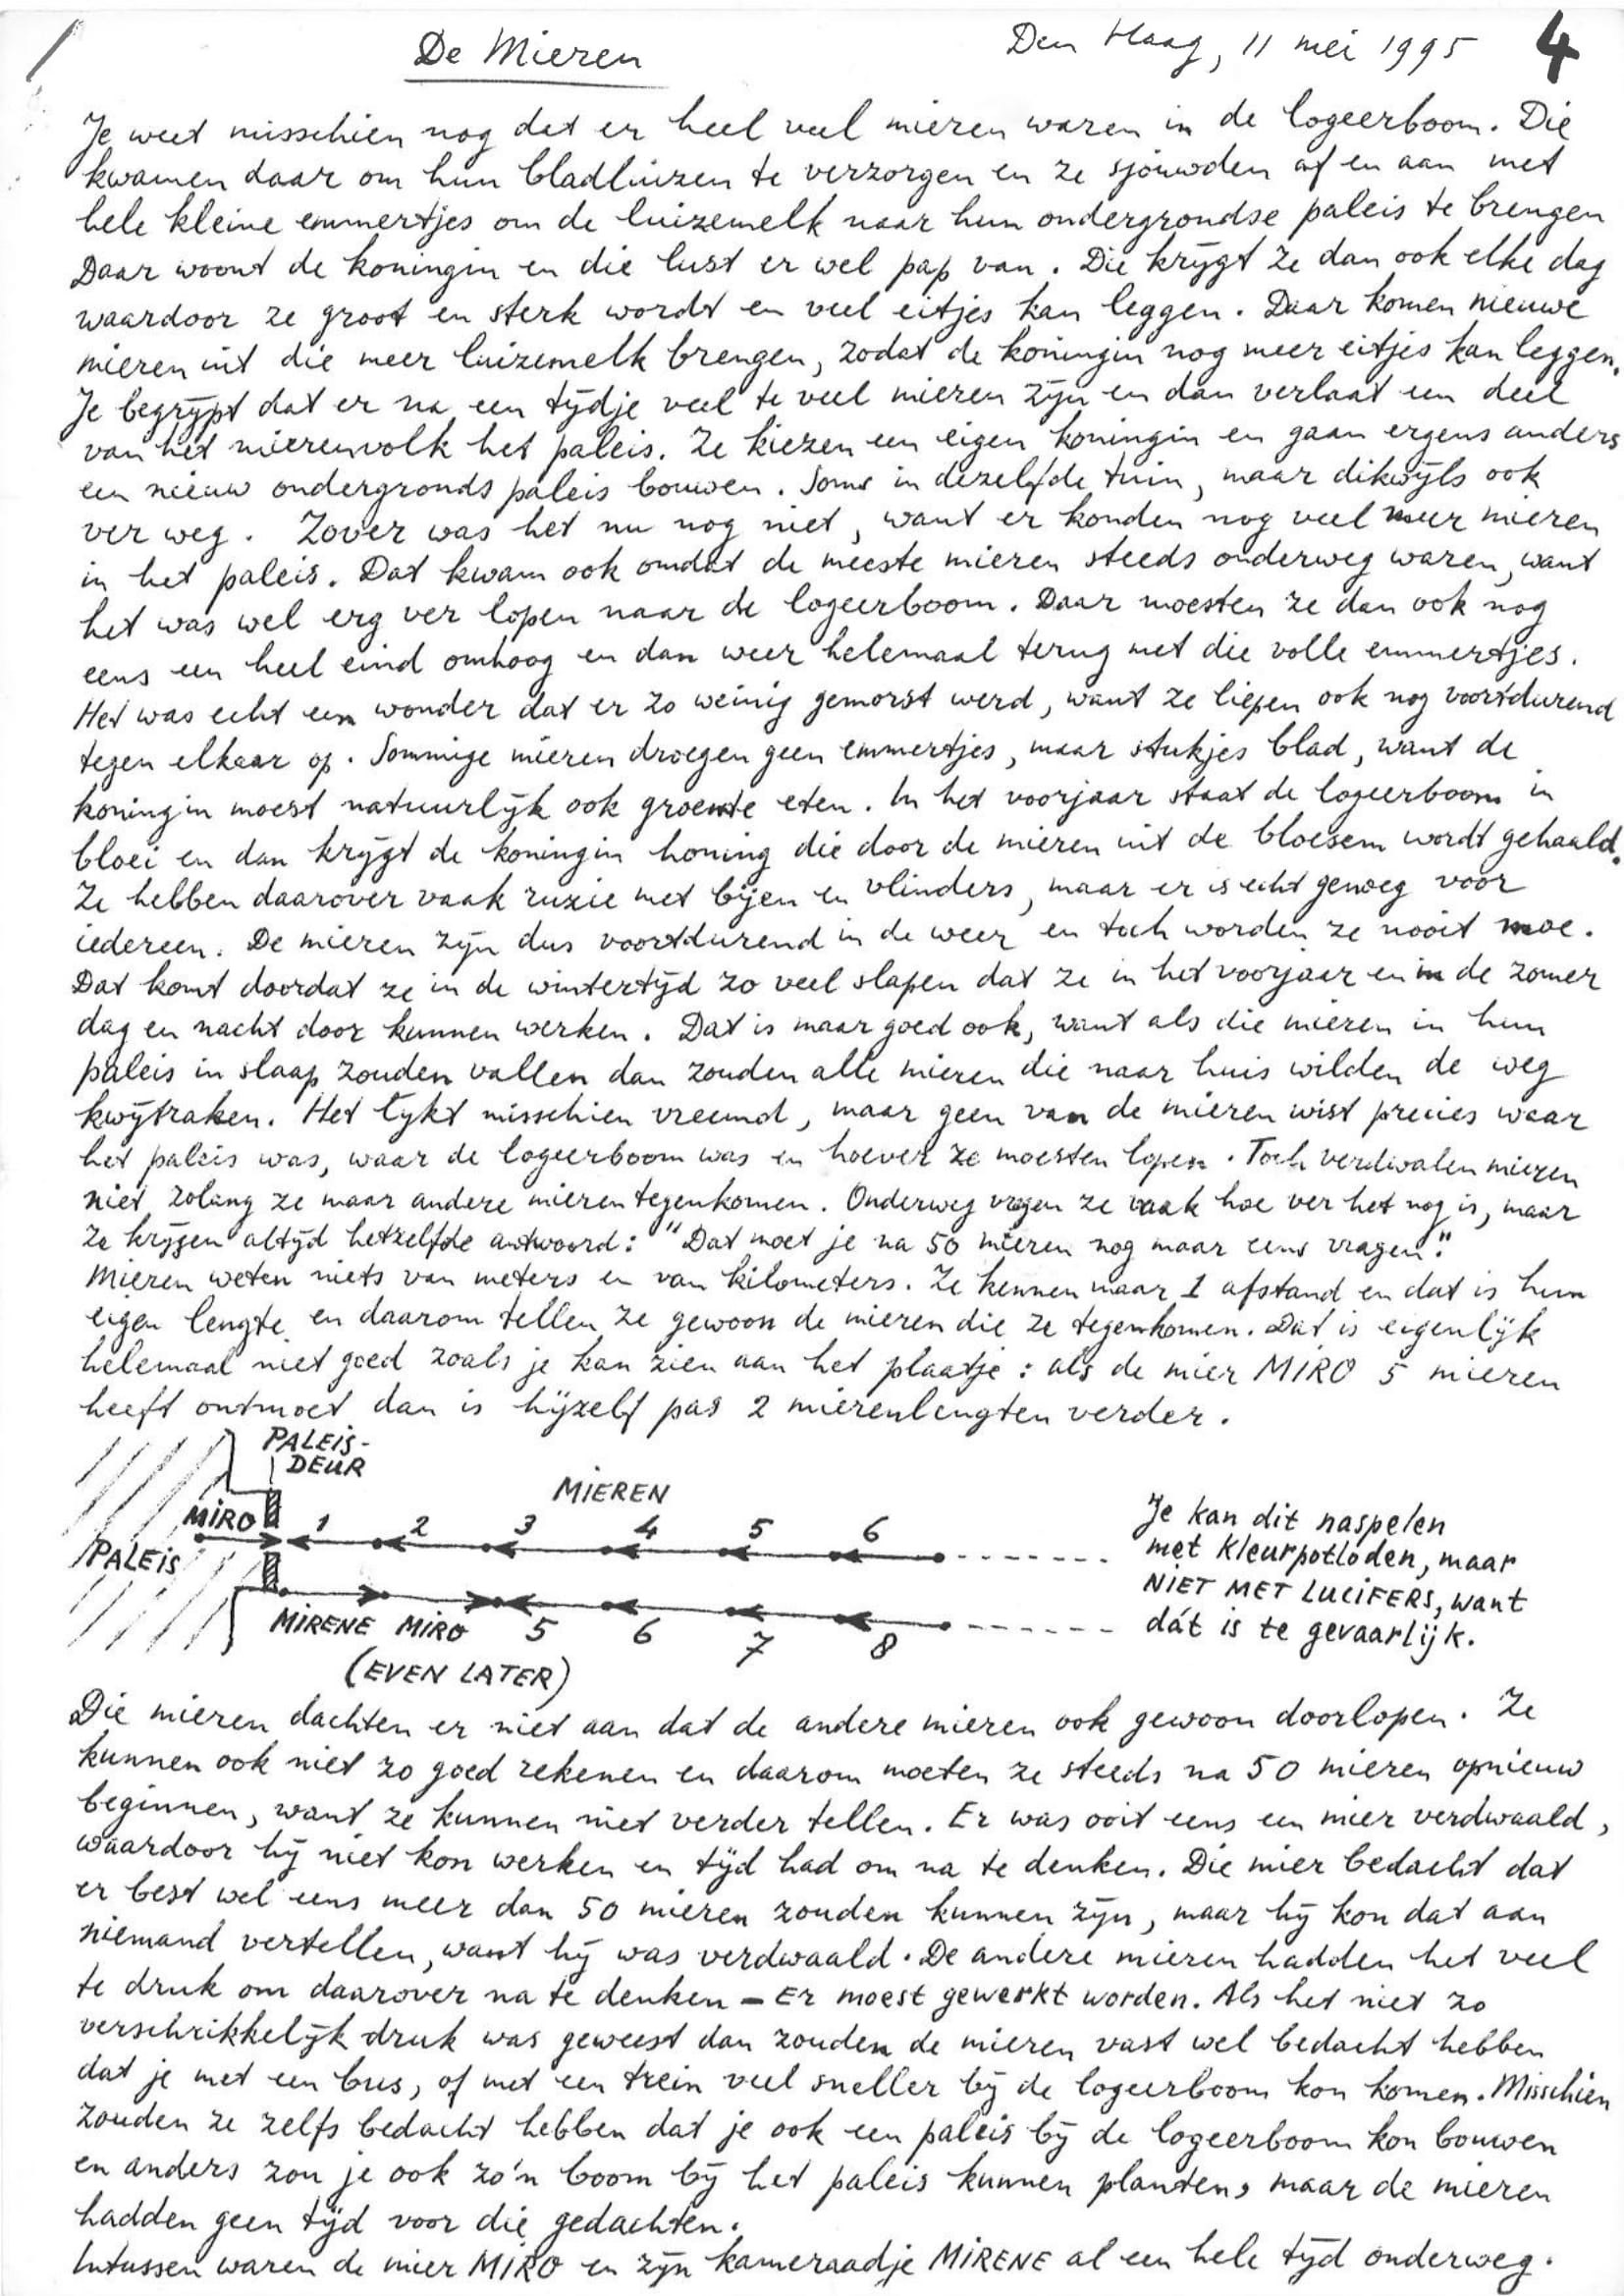 De Mieren
Den Haag, 11 mei 1995 4
Je weet misschien nog dat er heel veel mieren waren in de logeerboom. Die
kwamen daar om hun bladluizen te verzorgen en ze sjouwden af en aan met
hele kleine emmertjes om de luizemelk naar hun ondergrondse paleis te brengen
Daar woont de koningin en die lust er wel pap van. Die krijgt ze dan ook elke dag
waardoor ze groot en sterk wordt en veel eitjes kan leggen. Daar komen nieuwe
mieren uit die meer luizemelk brengen, zodat de koningin nog meer eitjes kan leggen.
Je begrijpt dat er na een tijdje veel te veel mieren zijn en dan verlaat een deel
van het mierenvolk het paleis. Ze kiezen een eigen koningin en gaan ergens anders
een nieuw ondergronds paleis bouwen. Soms in dezelfde tuin, maar dikwijls ook
ver weg. Zover was het nu nog niet, want er konden nog veel meer mieren
in het paleis. Dat kwam ook omdat de meeste mieren steeds onderweg waren, want
het was wel erg ver lopen naar de logeerboom. Daar moesten ze dan ook nog
eens een heel eind omhoog en dan weer helemaal terug met die volle emmertjes.
Het was echt een wonder dat er zo weinig gemorst werd, want ze liepen ook nog voortdurend
tegen elkaar op. Sommige mieren droegen geen emmertjes, maar stukjes blad, want de
koningin moest natuurlijk ook groente eten. In het voorjaar staat de logeerboom in
bloei en dan krijgt de koningin honing die door de mieren uit de bloesem wordt gehaald.
Ze hebben daarover vaak ruzie met bijen en vlinders, maar er is echt genoeg voor
iedereen. De mieren zijn dus voortdurend in de weer en toch worden ze nooit moe.
Dat komt doordat ze in de wintertijd zo veel slapen dat ze in het voorjaar en in de zomer
dag en nacht door kunnen werken. Dat is maar goed ook, want als die mieren in hun
paleis in slaap zouden vallen dan zouden alle mieren die naar huis wilden de weg
kwijtraken. Het lijkt misschien vreemd, maar geen van de mieren wist precies waar
het paleis was, waar de logeerboom was en hoever ze moesten lopen. Toch verdwalen mieren
niet zolang ze maar andere mieren tegenkomen. Onderweg vragen ze vaak hoe ver het nog is, maar
ze krijgen altijd hetzelfde antwoord: "Dat moet je na 50 mieren nog maar eens vragen."
Mieren weten niets van meters en van kilometers. Ze kennen maar 1 afstand en dat is hun
eigen lengte en daarom tellen ze gewoon de mieren die ze tegenkomen. Dat is eigenlijk
helemaal niet goed zoals je kan zien aan het plaatje: als de mier MIRO 5 mieren
heeft ontmoet dan is hijzelf pas 2 mierenlengten verder.
PALEIS-
DEUR
MIEREN
MIRO 1 2 3 4 5 6
PALEIS
MIRENE MIRO 5 6 7 8
(EVEN LATER)
Je kan dit naspelen
met kleurpotloden, maar
NIET MET LUCIFERS, want
dát is te gevaarlijk.
Die mieren dachten er niet aan dat de andere mieren ook gewoon doorlopen. Ze
kunnen ook niet zo goed rekenen en daarom moeten ze steeds na 50 mieren opnieuw
beginnen, want ze kunnen niet verder tellen. Er was ooit eens een mier verdwaald,
waardoor hij niet kon werken en tijd had om na te denken. Die mier bedacht dat
er best wel eens meer dan 50 mieren zouden kunnen zijn, maar hij kon dat aan
niemand vertellen, want hij was verdwaald. De andere mieren hadden het veel
te druk om daarover na te denken – Er moest gewerkt worden. Als het niet zo
verschrikkelijk druk was geweest dan zouden de mieren vast wel bedacht hebben
dat je met een bus, of met een trein veel sneller bij de logeerboom kon komen. Misschien
zouden ze zelfs bedacht hebben dat je ook een paleis bij de logeerboom kon bouwen
en anders zou je ook zo'n boom bij het paleis kunnen planten, maar de mieren
hadden geen tijd voor die gedachten.
Intussen waren de mier MIRO en zijn kameraadje MIRENE al een hele tijd onderweg.